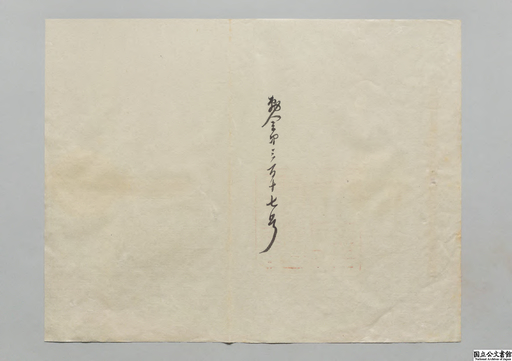 勅令第三百十七号
国立公文書館
National Archives of Japan